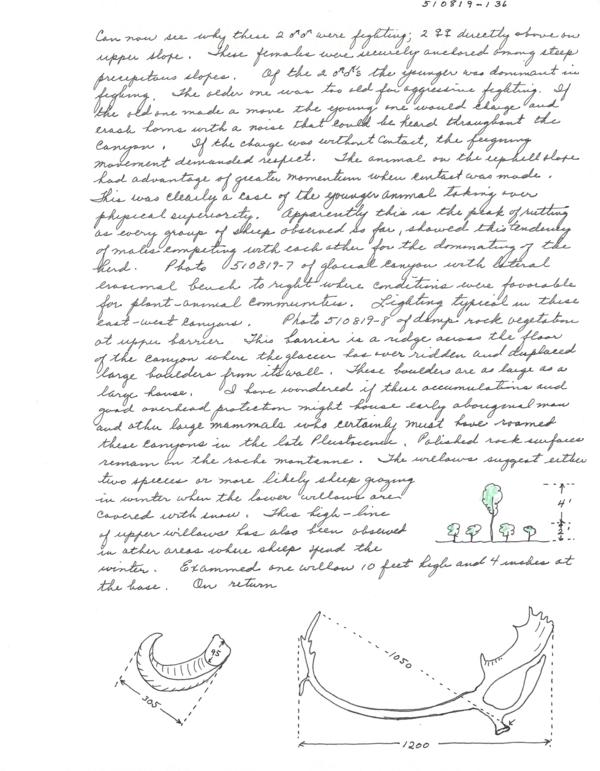 510819-136
Can now see why these 2 ♂♂ were fighting; 2 ♀♀ directly above on
upper slope. These females were securely anchored among steep
precipitous slopes. Of the 2 ♂♂'s the younger was dominant in
fighting. The older one was too old for aggressive fighting. If
the old one made a move the young one would charge and
crash horns with a noise that could be heard throughout the
canyon. If the charge was without contact, the feigning
movement demanded respect. The animal on the uphill slope
had advantage of greater momentum when contact was made.
This was clearly a case of the younger animal taking over
physical superiority. Apparently this is the peak of rutting
as every group of sheep observed so far, showed this tendency
of males competing with each other for the dominating of the
herd. Photo 510819-7 of glacial canyon with lateral
erosional bench to right where conditions were favorable
for plant-animal communities. Lighting typical in these
east-west canyons. Photo 510819-8 of damp rock vegetation
at upper barrier. This barrier is a ridge across the floor
of the canyon where the glacier has over ridden and displaced
large boulders from its wall. These boulders are as large as a
large house. I have wondered if these accumulations and
good overhead protection might house early aboriginal man
and other large mammals who certainly must have roamed
these canyons in the late Pleistocene. Polished rock surfaces
remain on the roche montanne. The willows suggest either
two species or more likely sheep grazing
in winter when the lower willows are
covered with snow. This high-line
of upper willows has also been observed
in other areas where sheep spend the
winter. Examined one willow 10 feet high and 4 inches at
the base. On return
4'
95
305
1050
1200